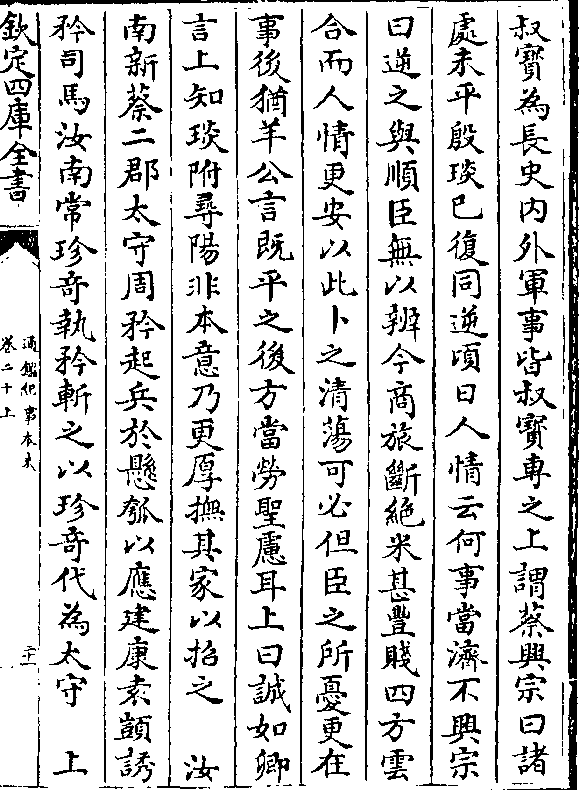 叔寶為長史内外軍事皆叔寶專之上謂蔡興宗曰諸
處未平殷琰已復同逆頃日人情云何事當濟不興宗
曰逆之與順臣無以辨今商旅斷絶米甚豐賤四方雲
合而人情更安以此卜之清蕩可必但臣之所憂更在
事後猶羊公言既平之後方當勞聖慮耳上曰誠如卿
言上知琰附尋陽非本意乃更厚撫其家以招之　汝
南新蔡二郡太守周矜起兵於懸瓠以應建康袁顗誘
矜司馬汝南常珍竒執矜斬之以珍竒代為太守　上
欽定四庫全書
通鑑紀事本末
卷二十上
二十一